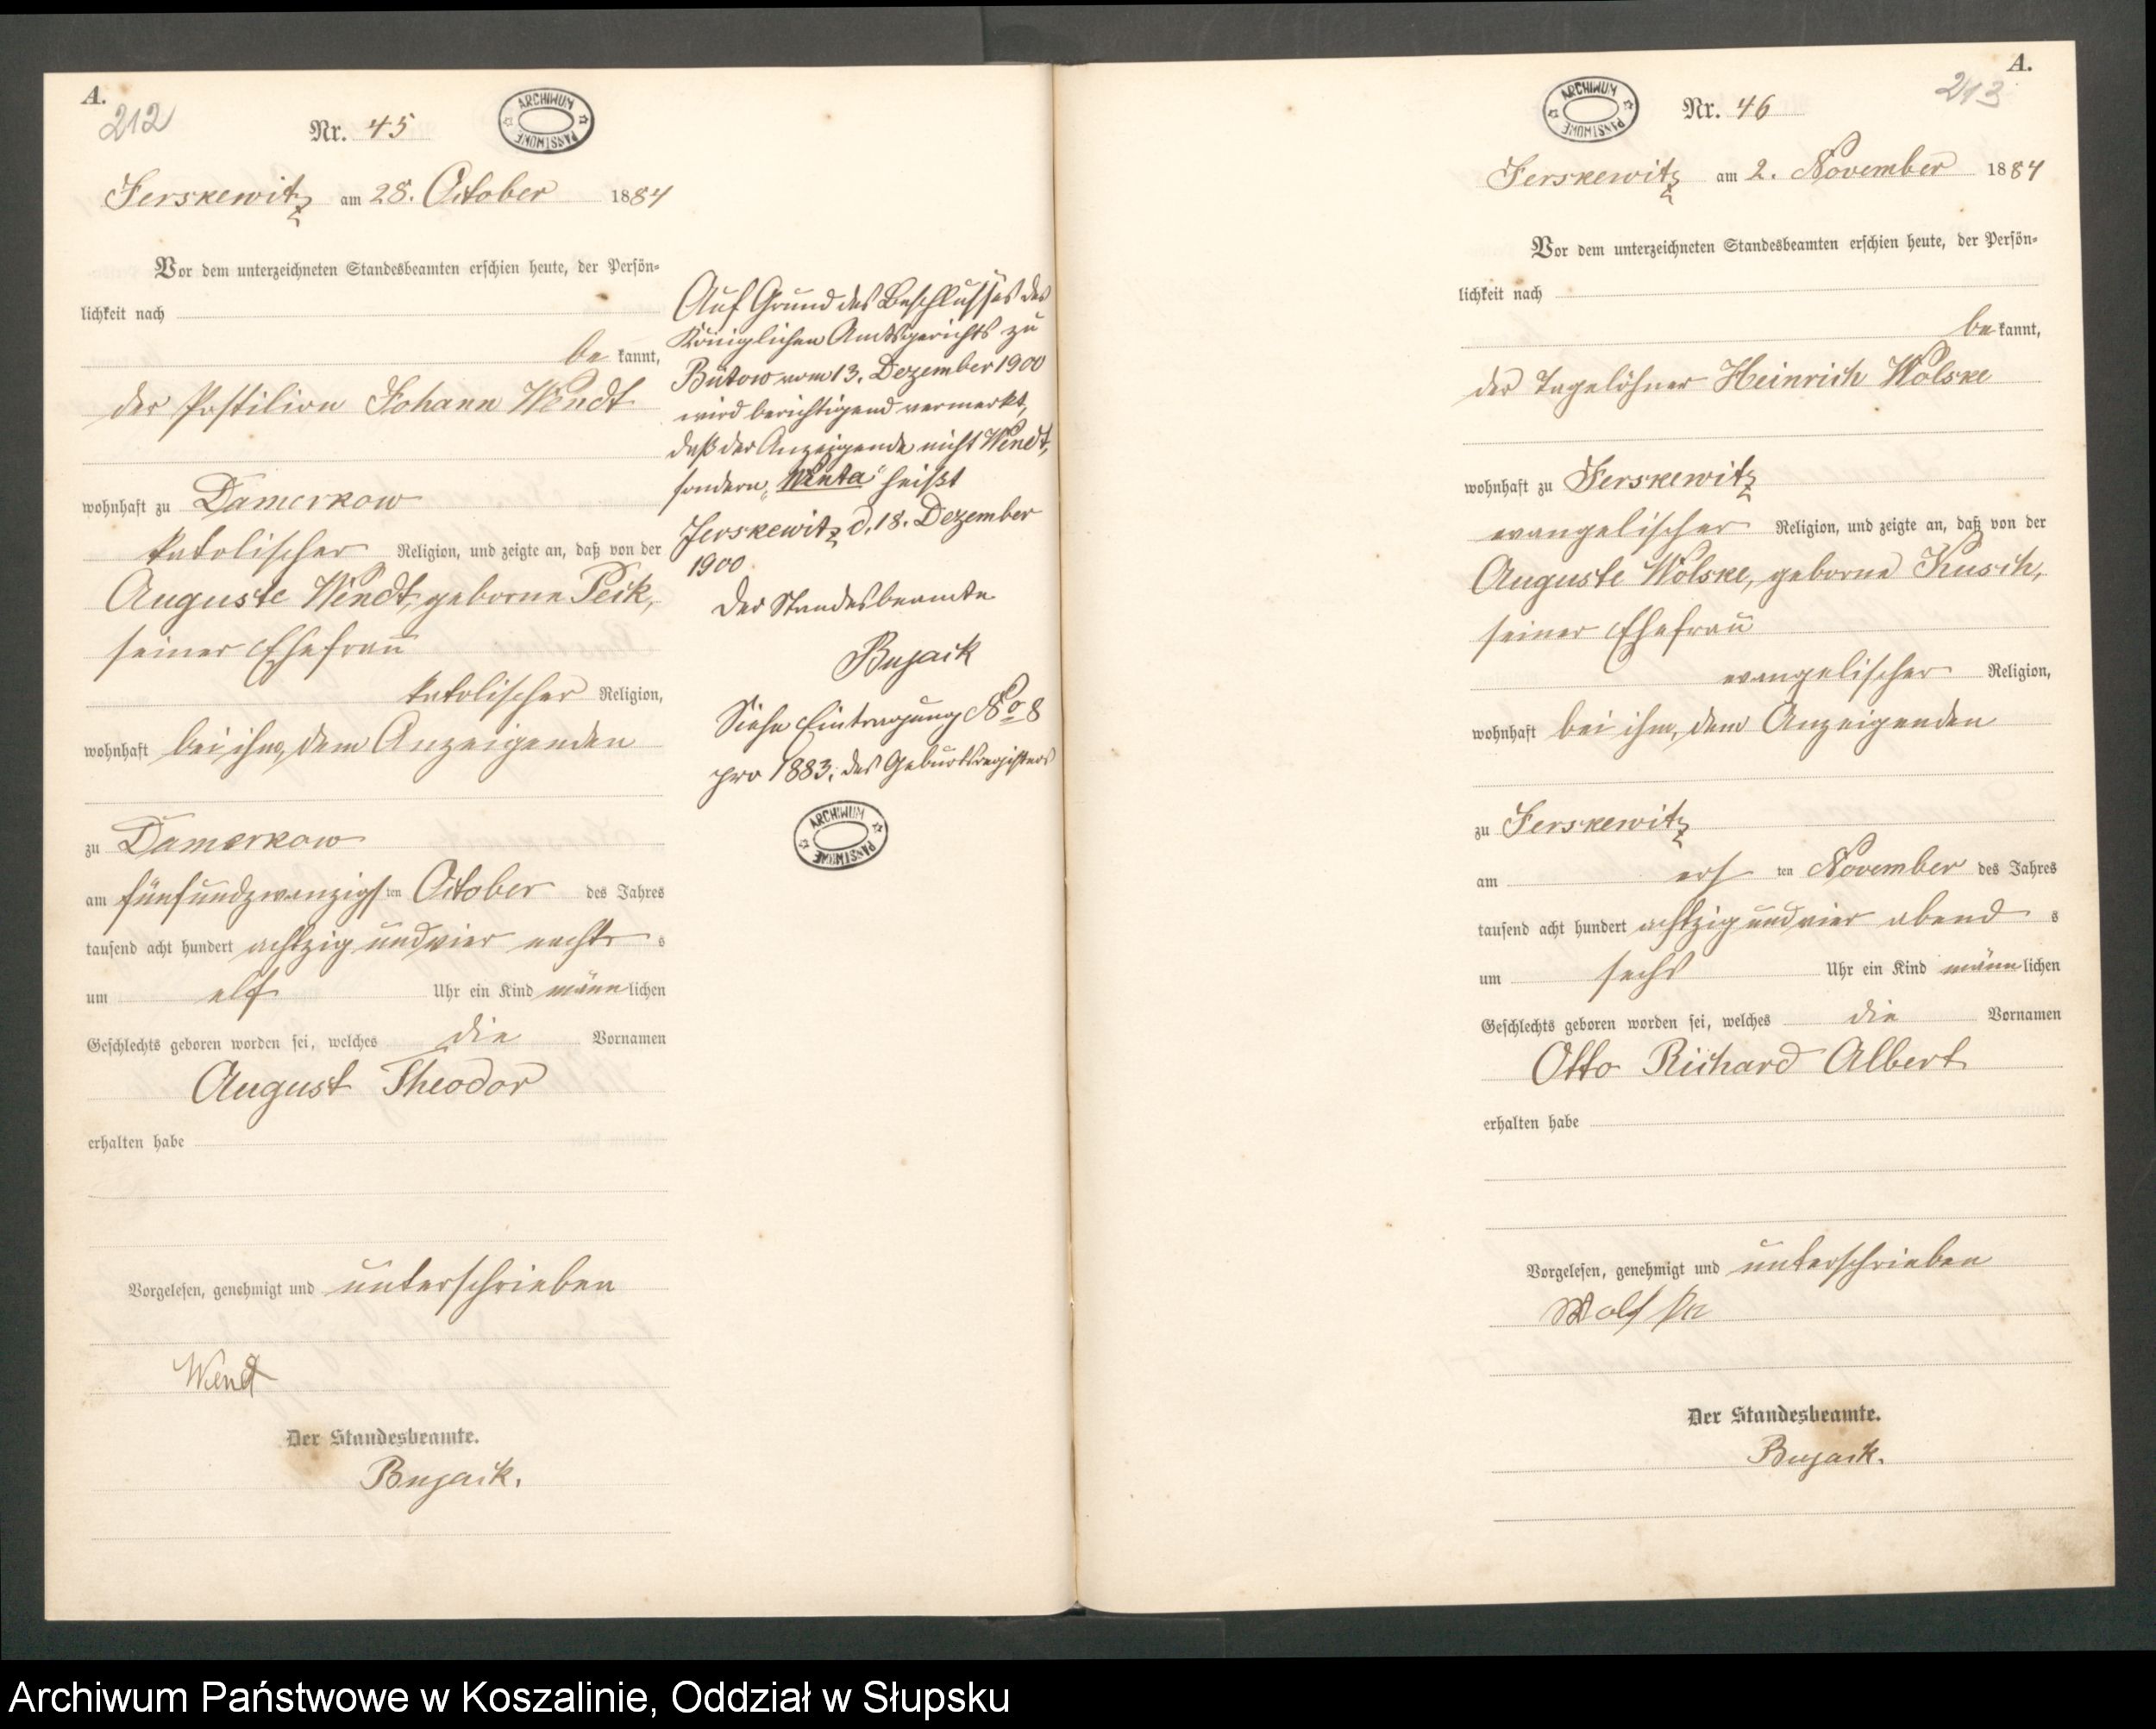 A.
212
Nr. 45
ARCHIWUM PAŃSTWOWE
Jerskewitz am 28. October 1884
Vor dem unterzeichneten Standesbeamten erschien heute, der Persön-
lichkeit nach
be kannt,
der Postilion Johann Wendt
wohnhaft zu Damerkow
katolischer Religion, und zeigte an, daß von der
Auguste Wendt, geborne Peik,
seiner Ehefrau
katolischer Religion,
wohnhaft bei ihm, dem Anzeigenden
zu Damerkow
am fünfundzwanzigsten October des Jahres
tausend acht hundert achtzig und vier nachts
um elf Uhr ein Kind männlichen
Geschlechts geboren worden sei, welches die Vornamen
August Theodor
erhalten habe
Vorgelesen, genehmigt und unterschrieben
Wend
Der Standesbeamte.
Bujack.
Auf Grund des Beschlusses des
Königlichen Amtsgerichts zu
Bütow vom 13. Dezember 1900
wird berichtigend vermerkt,
daß der Anzeigende nicht Wendt,
sondern „Wenta“ heißt
Jerskewitz d. 18. Dezember
1900.
Der Standesbeamte
Bujack
Siehe Eintragung No 8
pro 1883, des Geburtsregisters
ARCHIWUM PAŃSTWOWE
A.
213
ARCHIWUM PAŃSTWOWE
Nr. 46
Jerskewitz am 2. November 1884
Vor dem unterzeichneten Standesbeamten erschien heute, der Persön-
lichkeit nach
be kannt,
der Tagelöhner Heinrich Wolske
wohnhaft zu Jerskewitz
evangelischer Religion, und zeigte an, daß von der
Auguste Wolske, geborne Kusch,
seiner Ehefrau
evangelischer Religion,
wohnhaft bei ihm, dem Anzeigenden
zu Jerskewitz
am ersten November des Jahres
tausend acht hundert achtzig und vier abends
um sechs Uhr ein Kind männlichen
Geschlechts geboren worden sei, welches die Vornamen
Otto Richard Albert
erhalten habe
Vorgelesen, genehmigt und unterschrieben
Der Standesbeamte.
Bujack.
Archiwum Państwowe w Koszalinie, Oddział w Słupsku